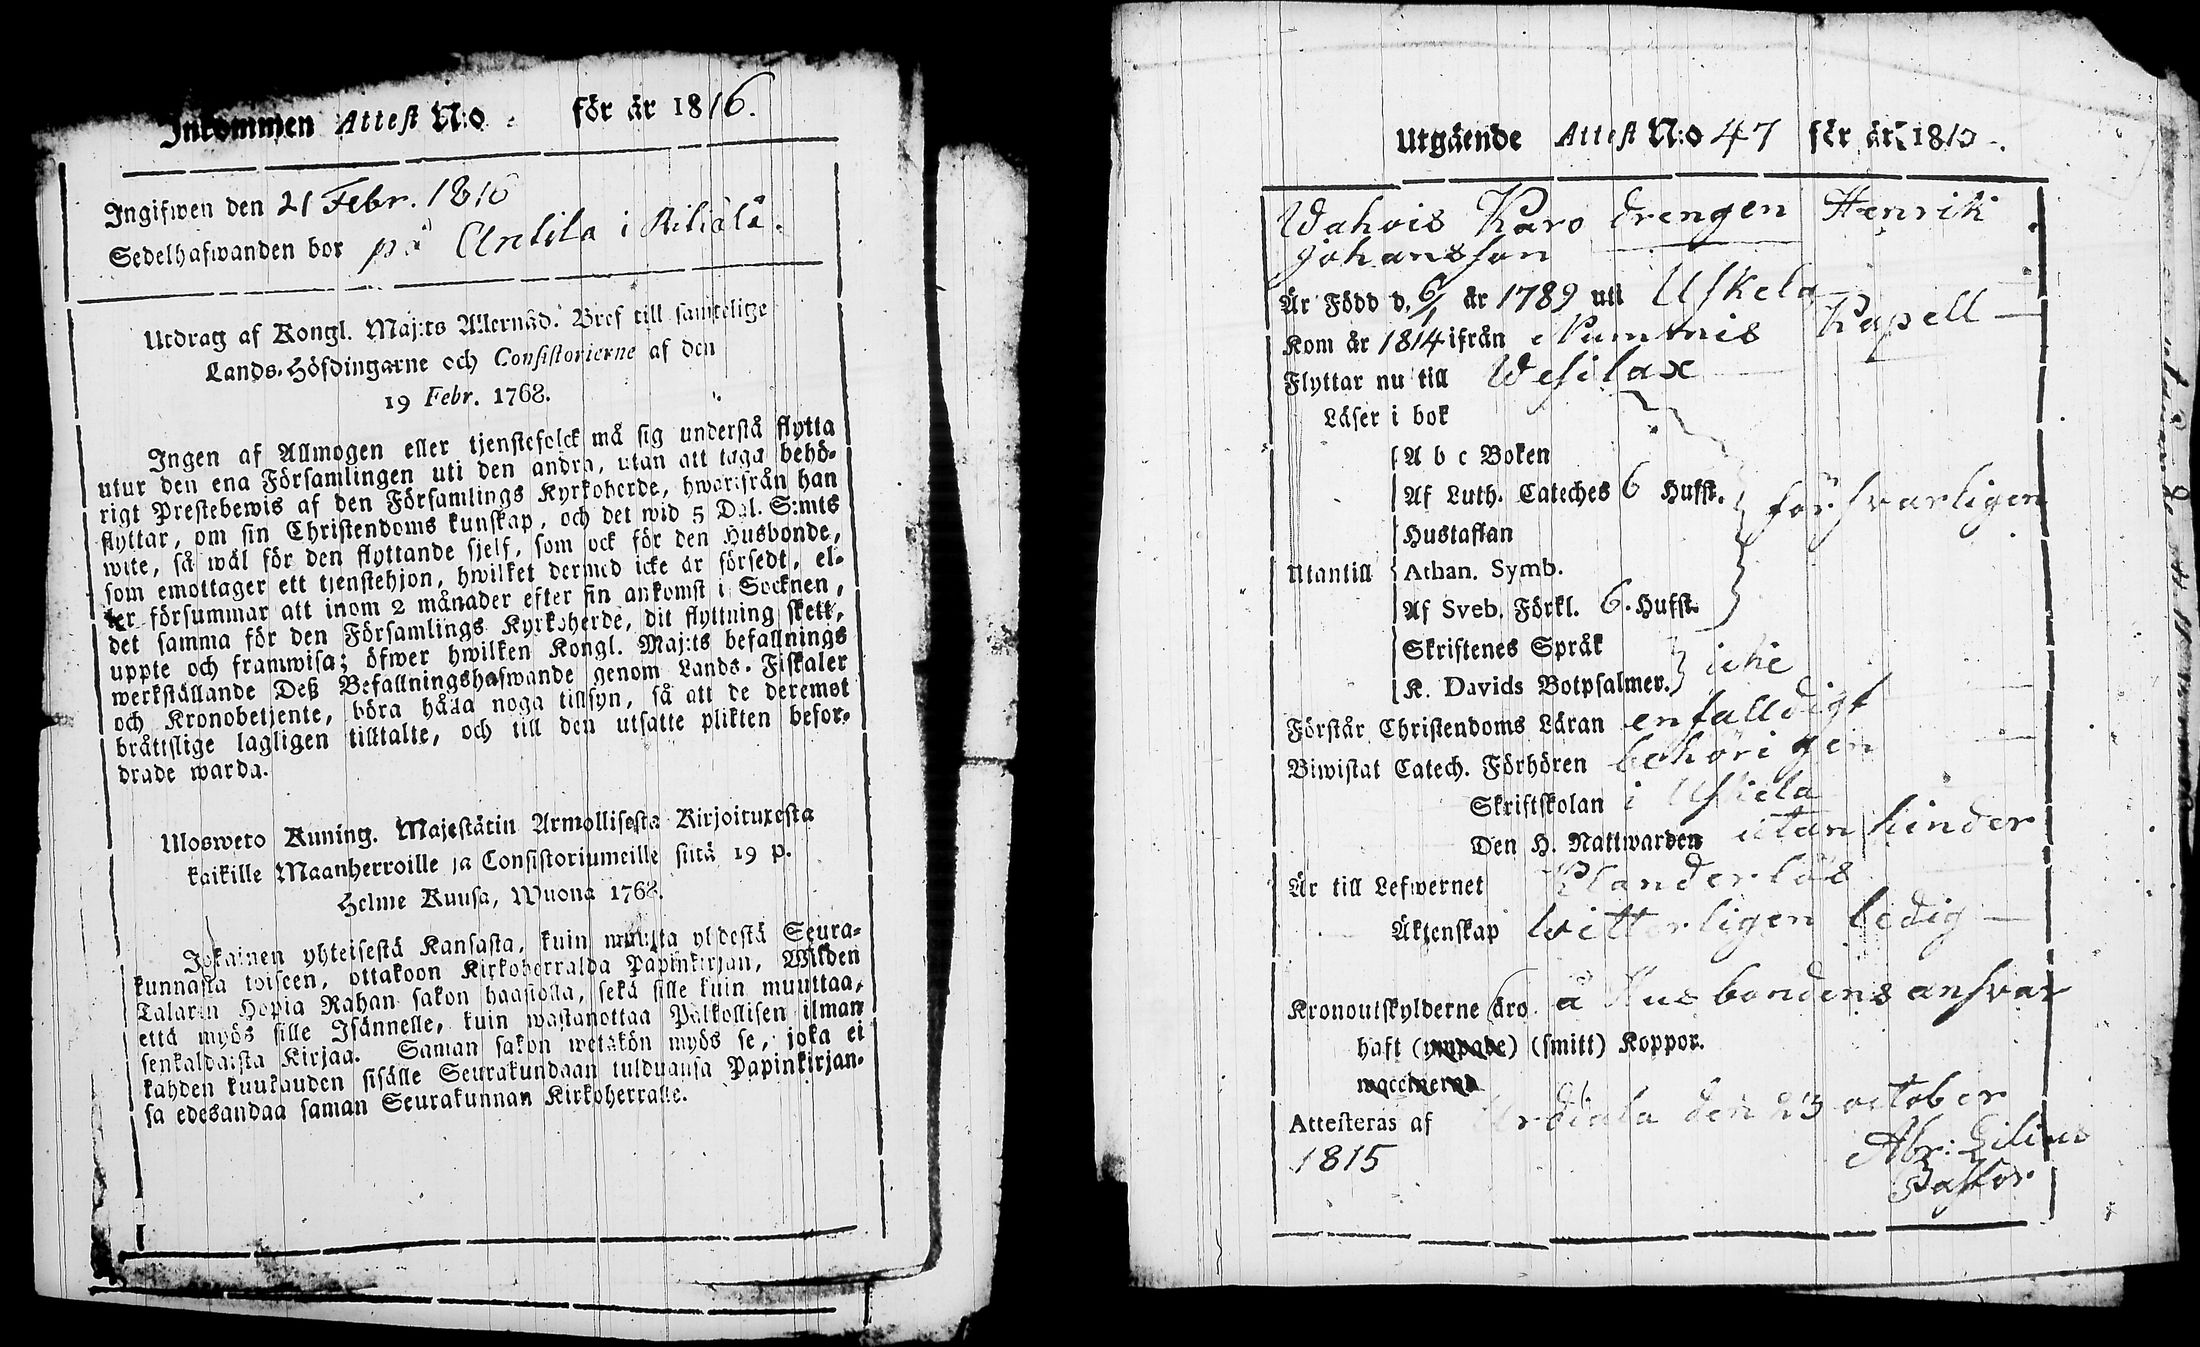 Inkommen Attest N:o för år 1816.
Ingifwen den 21 Febr. 1816
Sedelhafwanden bor på Antila i
Utdrag af Kongl. Maj:ts Allernåd. Bref till samtelige
Lands-Höfdingarne och Consistorierne af den
19 Febr. 1768.
Ingen af Allmogen eller tjenstefolck må sig understå flytta
utur den ena Församlingen uti den andra, utan att taga behö-
rigt Prestebewis af den Församlings Kyrkoherde, hwarifrån han
flyttar, om sin Christendoms kunskap, och det wid 5 Dal. S:mts
wite, så wäl för den flyttande sjelf, som ock för den Husbonde,
som emottager ett tjenstehjon, hwilket dermed icke är försedt, el-
ler försummar att inom 2 månader efter sin ankomst i Socknen,
det samma för den Församlings Kyrkoherde, dit flyttning skett,
uppte och framwisa; öfwer hwilken Kongl. Maj:ts befallnings
werkställande Deß Befallningshafwande genom Lands-Fiskaler
och Kronobetjente, böra hålla noga tillsyn, så att de deremot
bråttslige lagligen tilltalte, och till den utsatte plikten befor-
drade warda.
Ulosweto Kuning. Majestätin Armollisesta Kirjoituxesta
kaikille Maanherroille ja Consistoriumeille siitä 19 p.
Helme Kuusa, Wuona 1768.
Jokainen yhteisestä Kansasta, kuin muutta yhdestä Seura-
kunnasta toiseen, ottakoon Kirkoherralda Papinkirjan, Wiiden
Talarin Hopia Rahan sakon haastolla, sekä sille kuin muuttaa,
että myös sille Isännelle, kuin wastanottaa Palkollisen ilman
senkaldaista Kirjaa. Saman sakon wetäkön myös se, joka ei
kahden kuukauden sisälle Seurakundaan tulduansa Papinkirjan-
sa edesandaa saman Seurakunnan Kirkoherralle.
Utgående Attest N:o 47 för år 1815.
Wahois Karo drengen Henrik
Johansson
Är Född d. 6/1 år 1789 uti Uskela
Kom år 1814 ifrån Nummis Kapell
Flyttar nu till Wesilax
Läser i bok
A b c Boken
Af Luth. Cateches 6 Hufst. försvarligen
Hustaflan
Utantill Athan. Symb.
Af Sveb. Förkl. 6. Hufst.
Skriftenes Språk
K. Davids Botpsalmer. icke
Förstår Christendoms Läran enfalldigt
Biwistat Catech. Förhören behörigen
Skriftskolan i Uskela
Den H. Nattwarden utan hinder
Är till Lefwernet Klanderlös
Äktenskap Witterligen ledig
Kronoutskylderne äro å Husbondens answar
haft (ympade) (smitt) Koppor.
waccinerad
Attesteras af Urdiala den 23 october
1815 Abr: Lilius
Pastor